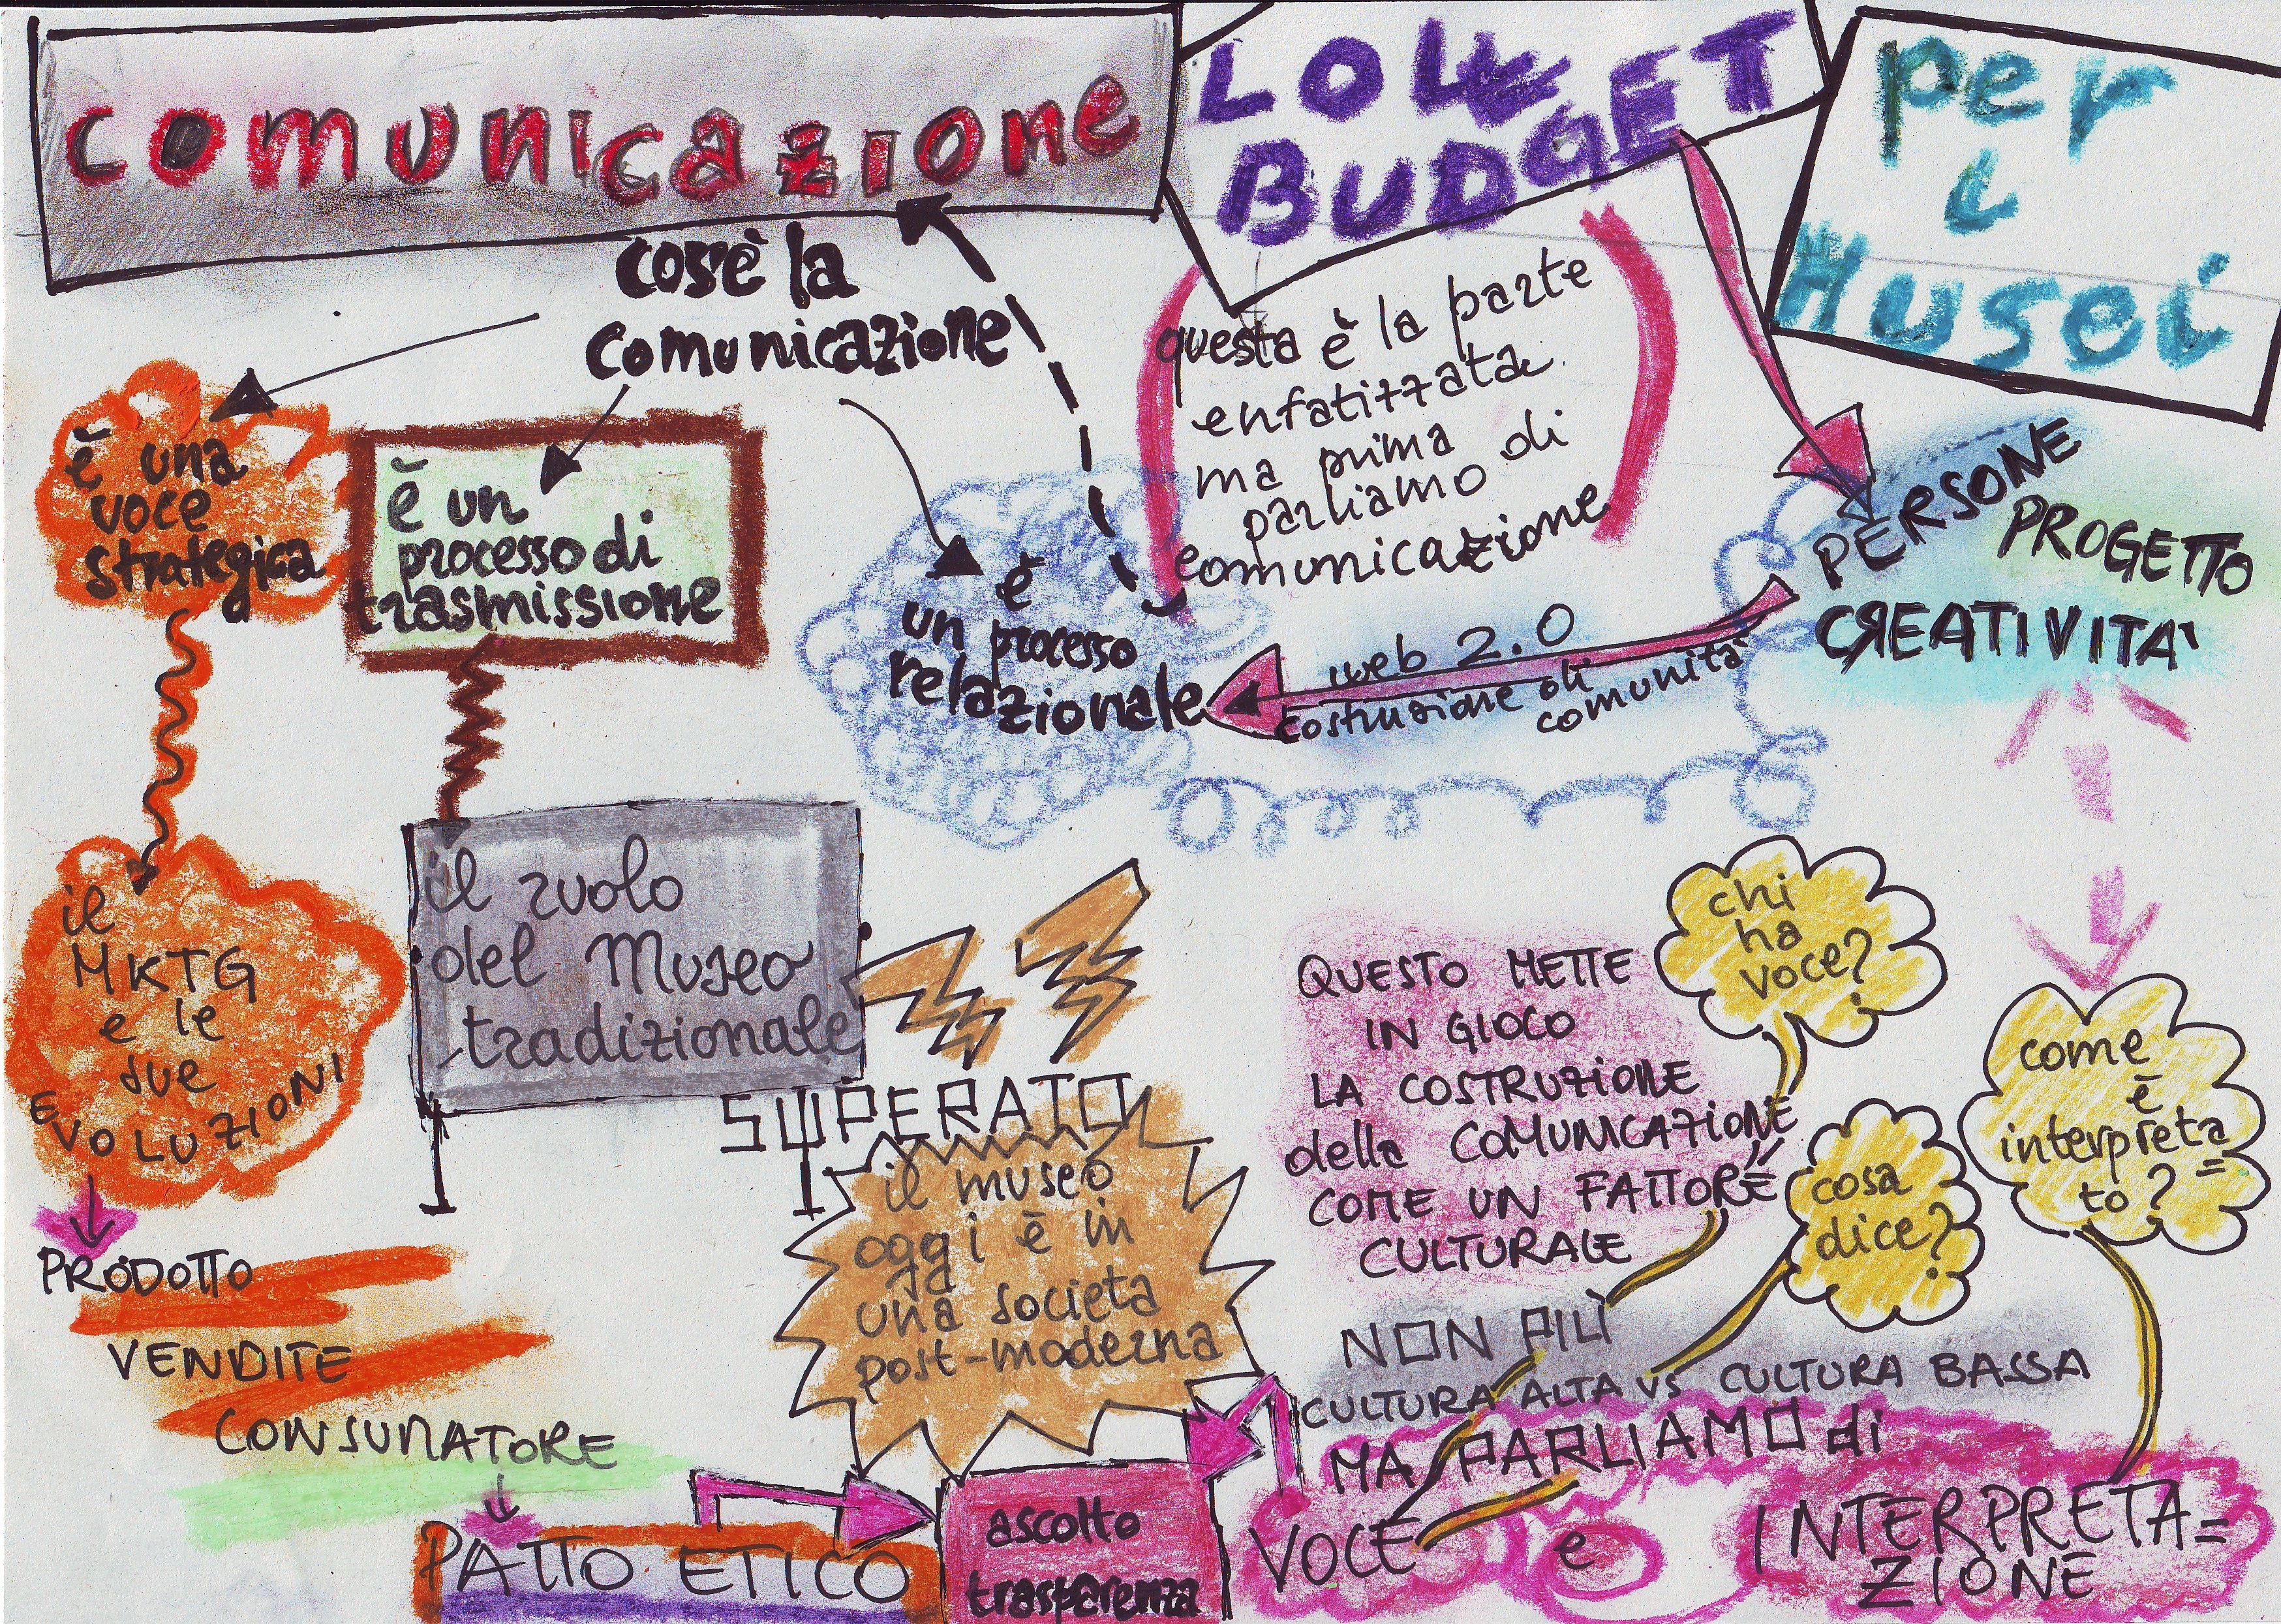 comunicazione
LOW
BUDGET
per
i
Musei
cos'è la
comunicazione
questa è la parte
enfatizzata
ma prima
parliamo di
comunicazione
è una
voce
strategica
è un
processo di
trasmissione
è
un processo
relazionale
web 2.0
costruzione di
comunità
PERSONE
PROGETTO
CREATIVITA'
il
MKTG
e le
sue
EVOLUZIONI
PRODOTTO
VENDITE
CONSUMATORE
PATTO ETICO
il ruolo
del Museo
tradizionale
SUPERATO
il museo
oggi è in
una società
post-moderna
ascolto
trasparenza
QUESTO METTE
IN GIOCO
LA COSTRUZIONE
della COMUNICAZIONE
COME UN FATTORE
CULTURALE
chi
ha
voce?
cosa
dice?
come
è
interpreta=
to?
NON PIÙ
CULTURA ALTA VS CULTURA BASSA
MA PARLIAMO di
VOCE e INTERPRETA=
ZIONE